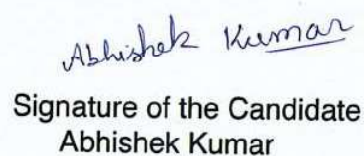 Abhishek Kumar
Signature of the Candidate
Abhishek Kumar